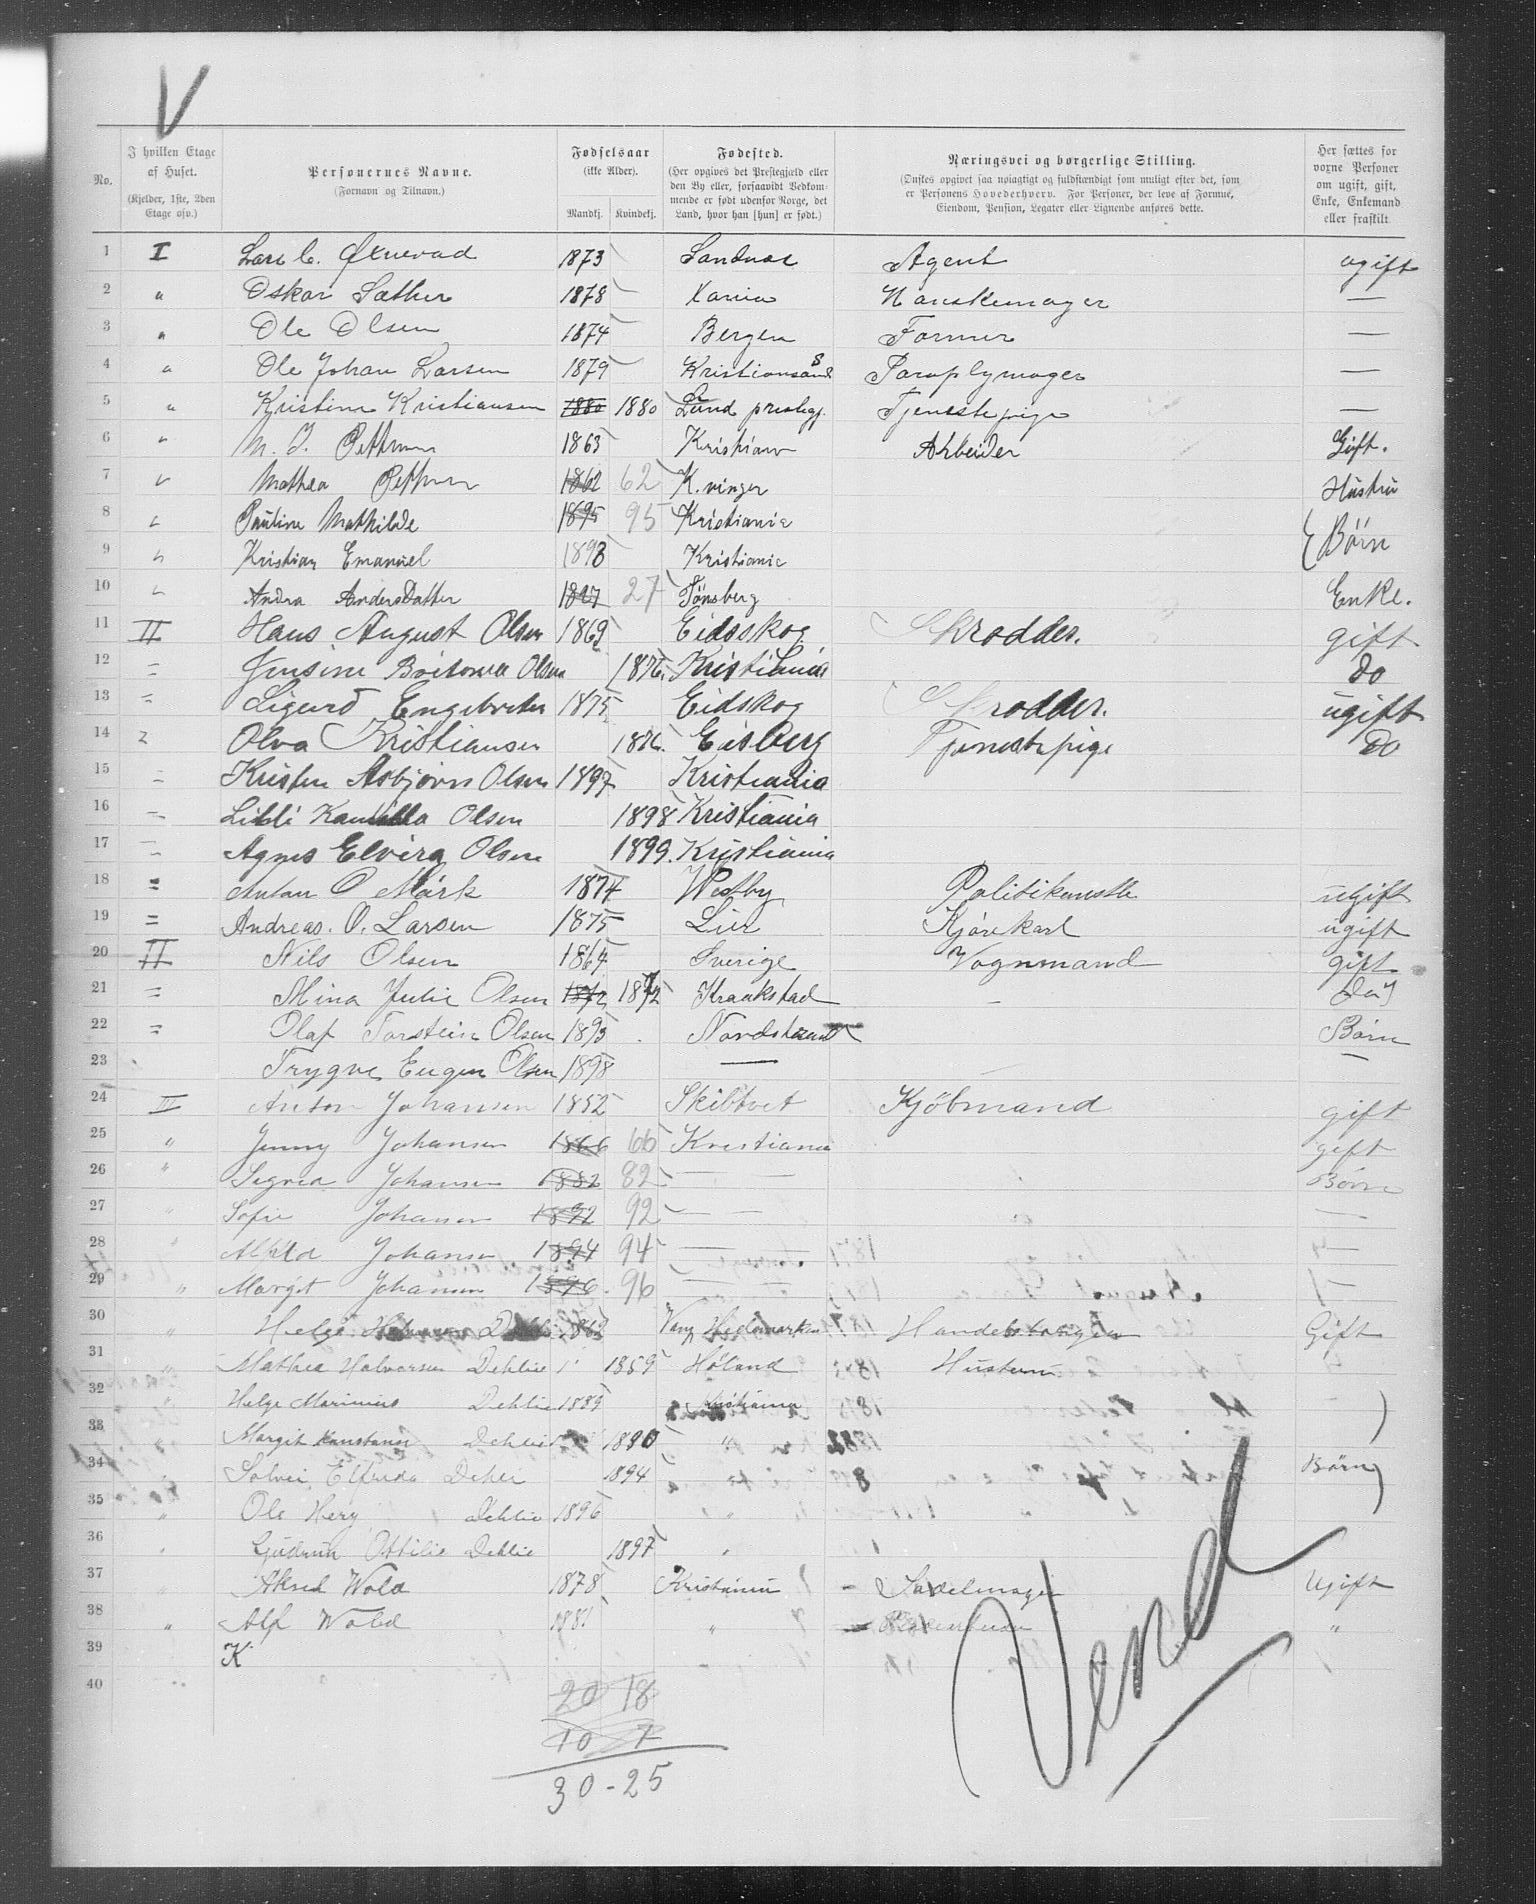 V
No. | I hvilken Etage af Huset. (Kjelder, 1ste, 2den Etage osv.) | Personernes Navne. (Fornavn og Tilnavn.) | Fødselsaar (ikke Alder). Mandkj. Kvindekj. | Fødested. (Her opgives det Prestegjæld eller den By eller, forsaavidt Vedkommende er født udenfor Norge, det Land, hvor han [hun] er født.) | Næringsvei og borgerlige Stilling. (Ønskes opgivet saa nøiagtigt og fuldstændigt som muligt efter det, som er Personens Hovederhverv. For Personer, der leve af Formue, Eiendom, Pension, Legater eller Lignende anføres dette. | Her sættes for voxne Personer om ugift, gift, Enke, Enkemand eller fraskilt
1 I Lars C. Øxnevad 1873 Sandnæs Agent ugift
2 " Oskar Sæther 1878 Xania Hanskemager —
3 " Ole Olsen 1874 Bergen Former —
4 " Ole Johan Larsen 1879 Kristiansand S Paraplymager —
5 " Kristine Kristiansen 1880 1880 Lund prestegj. Tjenestepige —
6 " M. J. Pettersen 1863 Kristiania Arbeider Gift.
7 " Mathea Pettersen 1862 62 K.vinger Hustru
8 " Pauline Mathilde 1895 95 Kristiania { Børn
9 " Kristian Emanuel 1898 Kristiania
10 " Andra Andersdatter 1827 27 Tönsberg Enke.
11 II Hans August Olsen 1869 Eidsskog Skrædder. gift
12 = Jensine Olsen 1876 Kristiania do
13 = Sigurd Engebretsen 1875 Eidskog Skrædder. ugift
14 Olva Kristiansen 1876. Eisberg Tjenestepige do
15 = Kristen Asbjørn Olsen 1897 Kristiania
16 = Lilli Kamilla Olsen 1898 Kristiania
17 = Agnes Elvira Olsen 1899. Kristiania
18 = Anton O Mørk 1874 Westby Politikonstb ugift
19 = Andreas. O. Larsen 1875 Lier Kjørekarl ugift
20 II Nils Olsen 1864 Sverige Vognmand gift
21 = Mina Julie Olsen 1872 1872 Kraakstad — do
22 = Olaf Torstein Olsen 1893 Nordstrand Børn
23 Trygve Eugen Olsen 1898 — —
24 III Anton Johansen 1852 Skibtvet Kjöbmand gift
25 " Jenny Johansen 1866 66 Kristiania gift
26 " Sigrid Johansen 1882 82 — — Børn
27 " Sofie Johansen 1892 92 — — —
28 " Alfhild Johansen 1894 94 — — —
29 " Margit Johansen 1896 96 — —
30 " Helge 1862 Vang Hedemarken Handelsborger Gift
31 " Mathea Halvorsen Dehlie 1859 Høland Hustru
32 " Helge Marinius Dehlie 1889 Kristiania )
33 " Margit Konstanse Dehlie 1890 "
34 Solvei Elfrida Dehli 1894 Børn )
35 " Ole Henry Dehlie 1896 "
36 Gudrun Ottilie Dehlie 1897 "
37 " Aksel Wold 1878 Kristiania — Sadelmager Ugift
38 " Alf Wold 1881 " "
39 K
40
20 18
10 7
30 - 25
Vend